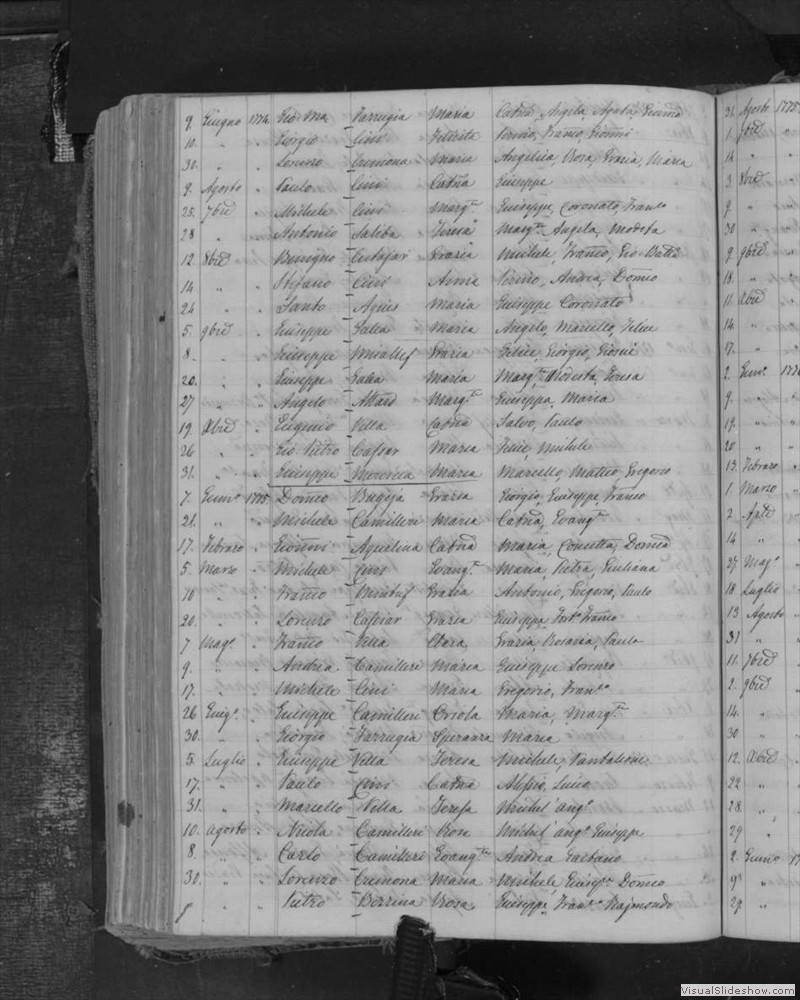 9. Giugno 1774 Gio: Ma Farrugia Maria Catña, Angela, Agata, Giuma
10. " " Giorgio Cini Felicita Franco, Gionni
30. " " Lorenzo Cremona Maria Angelica, Rosa, Grazia, Maria
9. Agosto " Paulo Cini Catña Giuseppe
25. 7bre " Michele Cini Marg.ta Giuseppe, Coronato, Fran.co
28 " " Antonio Saliba Teresa Marg.ta Angela, Modesta
12 8bre " Benigno Cutajar Grazia Michele, Franco, Gio: Batta
14 " " Stefano Cini Anna Andrea, Domco
24 " " Santo Agius Maria Giuseppe Coronato
5. 9bre " Giuseppe Galea Maria Angelo, Marcello, Felice
8. " " Giuseppe Micallef Grazia Felice, Giorgio, Giosue
20. " " Giuseppe Galea Maria Marg.ta Modesta, Teresa
27 " " Angelo Attard Marg.ta Giuseppa, Maria
19. Xbre " Eugenio Vella Catña Salvo, Paulo
26 " " Gio: Pietro Cassar Maria Felice, Michele
31. " " Giuseppe Maria Marcello, Matteo, Gregorio
7. Genn.o 1775 Domco Bugeja Grazia Giorgio, Giuseppe, Franco
21. " " Michele Camilleri Maria Catña, Evang.ta
17. Febraro " Gioñni Aquilina Catña Maria, Concetta, Domca
5. Marzo " Michele Cini Evang.ta Maria, Pietra, Giuliana
10 " " Franco Grazia Antonio, Gregorio, Paulo
20. " " Lorenzo Cassar Grazia Giuseppe, Fort.o Franco
7 Mag.o " Franco Vella Clara Grazia, Rosaria, Paula
9. " " Andrea Camilleri Maria Giuseppe Lorenzo
17. " " Michele Cini Maria Gregorio, Fran.co
26 Giug.o " Giuseppe Camilleri Oriola Maria, Marg.ta
30. " " Giorgio Farrugia Speranza Maria
5. Luglio " Giuseppe Vella Teresa Michele, Pantaleone
17. " " Paulo Cini Catña Alessio, Luca
31. " " Marcello Vella Teresa Michel'ang.o
10. Agosto " Nicola Camilleri Rosa Michel'ang.o Giuseppe
8. " " Carlo Camilleri Evang.ta Andrea Gaetano
30. " " Lorenzo Cremona Maria Michele, Giusep.e Domco
" " Pietro Berrina Rosa Giuseppe, Fran.co Rajmondo
31. Agosto 1775
1. 7bre
14 "
3. 8bre
9. "
30 "
9. 9bre
18. "
11. Xbre
14. "
17. "
2. Genn.o 1776
9. "
19. "
20 "
13. Febraro
1. Marzo
2. Aple
14 "
27 Mag.o
18. Luglio
13 Agosto
31 "
11. 7bre
2. 9bre
14. "
30 "
12. Xbre
22 "
28. "
29 "
2. Genno
9. "
29. "
VisualSlideshow.com